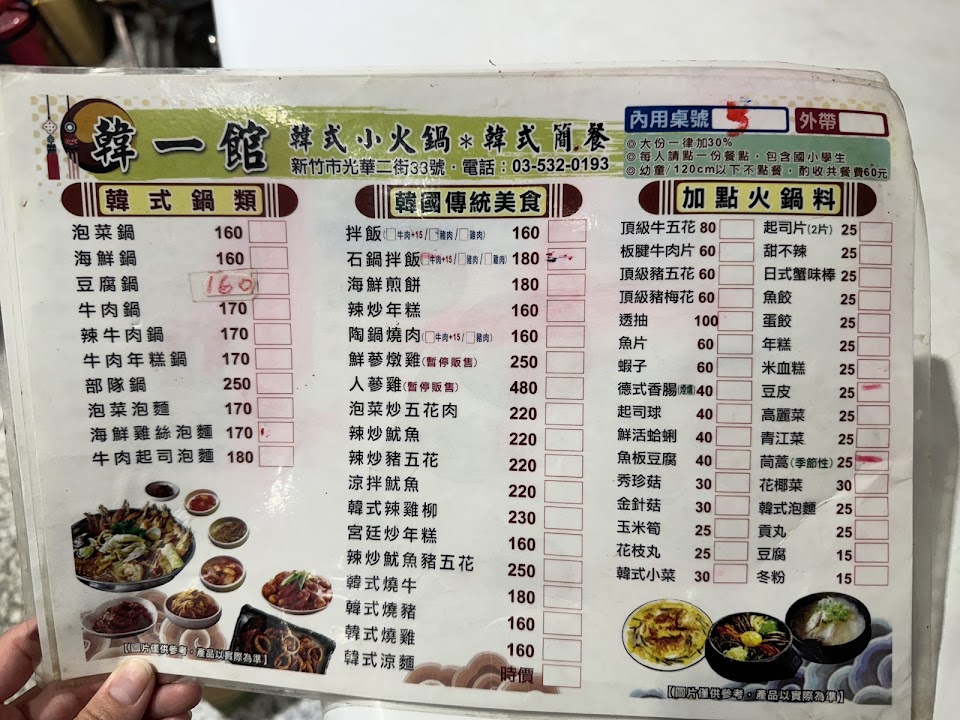 韓一館 韓式小火鍋*韓式簡餐
新竹市光華二街33號・電話:03-532-0193
內用桌號 5 外帶
◎大份一律加30%
◎每人請點一份餐點,包含國小學生
◎幼童/120cm以下不點餐,酌收共餐費60元
韓式鍋類
泡菜鍋 160
海鮮鍋 160
豆腐鍋 160
牛肉鍋 170
辣牛肉鍋 170
牛肉年糕鍋 170
部隊鍋 250
泡菜泡麵 170
海鮮雞絲泡麵 170
牛肉起司泡麵 180
【(圖片僅供參考,產品以實際為準)】
韓國傳統美食
拌飯(□牛肉+15/□豬肉/□雞肉) 160
石鍋拌飯(□牛肉+15/□豬肉/□雞肉) 180
海鮮煎餅 180
辣炒年糕 160
陶鍋燒肉(□牛肉+15/□豬肉) 160
鮮蔘燉雞(暫停販售) 250
人蔘雞(暫停販售) 480
泡菜炒五花肉 220
辣炒魷魚 220
辣炒豬五花 220
涼拌魷魚 220
韓式辣雞柳 230
宮廷炒年糕 160
辣炒魷魚豬五花 250
韓式燒牛 180
韓式燒豬 160
韓式燒雞 160
韓式涼麵 時價
加點火鍋料
頂級牛五花 80
板腱牛肉片 60
頂級豬五花 60
頂級豬梅花 60
透抽 100
魚片 60
蝦子 60
德式香腸(煙燻) 40
起司球 40
鮮活蛤蜊 40
魚板豆腐 40
秀珍菇 30
金針菇 30
玉米筍 25
花枝丸 25
韓式小菜 30
起司片(2片) 25
甜不辣 25
日式蟹味棒 25
魚餃 25
蛋餃 25
年糕 25
米血糕 25
豆皮 25
高麗菜 25
青江菜 25
茼蒿(季節性) 25
花椰菜 30
韓式泡麵 25
貢丸 25
豆腐 15
冬粉 15
【(圖片僅供參考,產品以實際為準)】